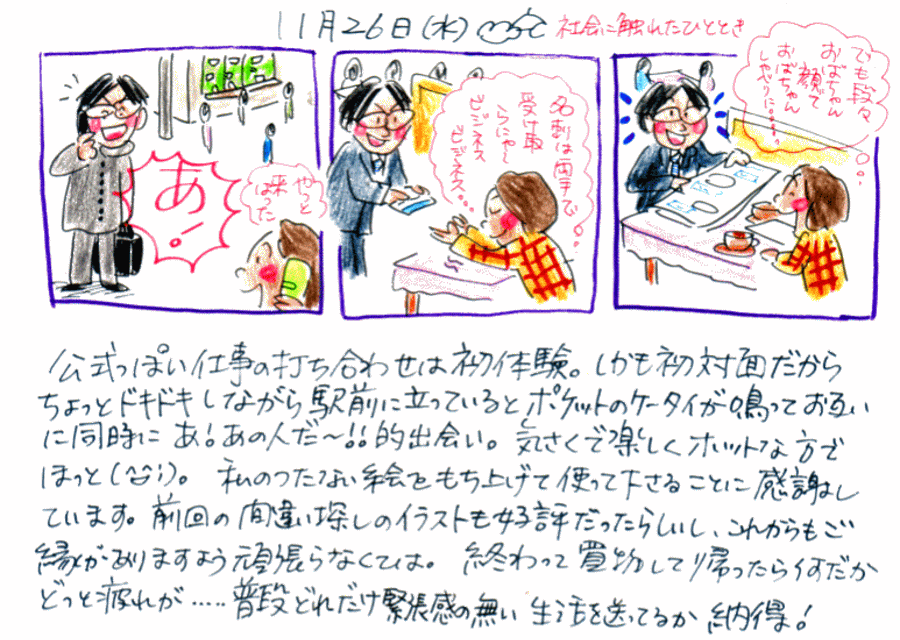 11月26日(水)
社会に触れたひととき
あ!
やっと
来
はった
名刺は両手で
受け取
らにゃ〜
ビジネス
ビジネス…
でも段々
おばちゃん
顔で
おばちゃん
しゃべりに……
公式っぽい仕事の打ち合わせは初体験。しかも初対面だから
ちょっとドキドキしながら駅前に立っているとポケットのケータイが鳴ってお互い
に同時に あ!あの人だ〜!!的出会い。気さくで楽しくホットな方で
ほっと(^^;)。 私のつたない絵をもち上げて使って下さることに感謝し
ています。前回の間違い探しのイラストも好評だったらしいし、これからもご
縁がありますよう頑張らなくては。 終わって買物して帰ったら何だか
どっと疲れが……普段どれだけ緊張感の無い 生活を送ってるか 納得!